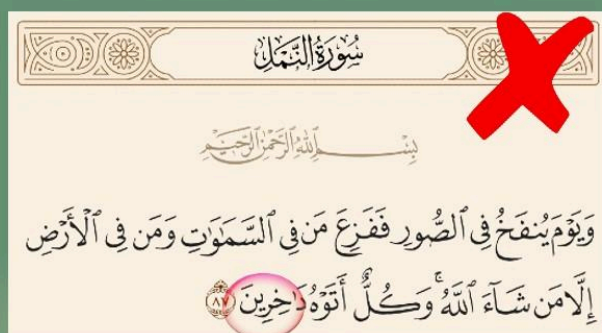 سُورَةُ النَّمْلِ
بِسْمِ ٱللَّهِ ٱلرَّحْمَٰنِ ٱلرَّحِيمِ
وَيَوْمَ يُنفَخُ فِى ٱلصُّورِ فَفَزِعَ مَن فِى ٱلسَّمَٰوَٰتِ وَمَن فِى ٱلْأَرْضِ
إِلَّا مَن شَآءَ ٱللَّهُ ۚ وَكُلٌّ أَتَوْهُ دَاخِرِينَ ٨٧